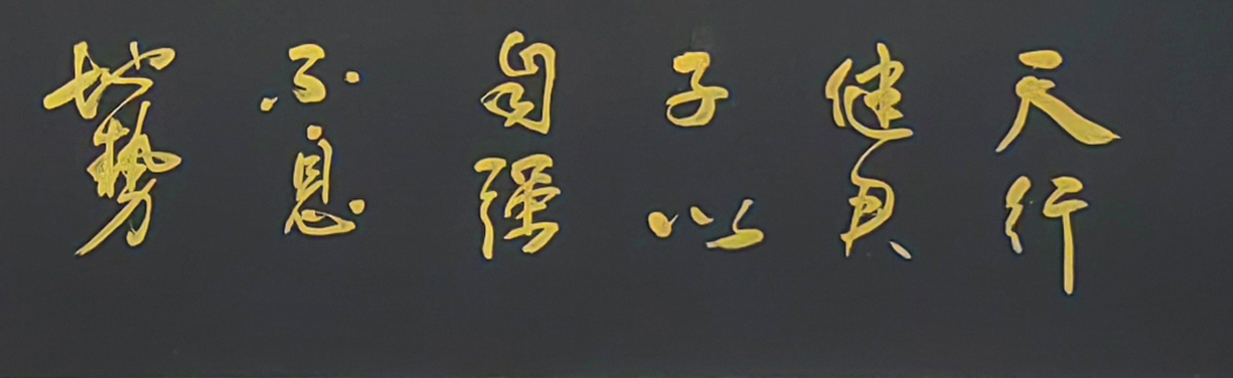 天行
健君
子以
自强
不息
地势